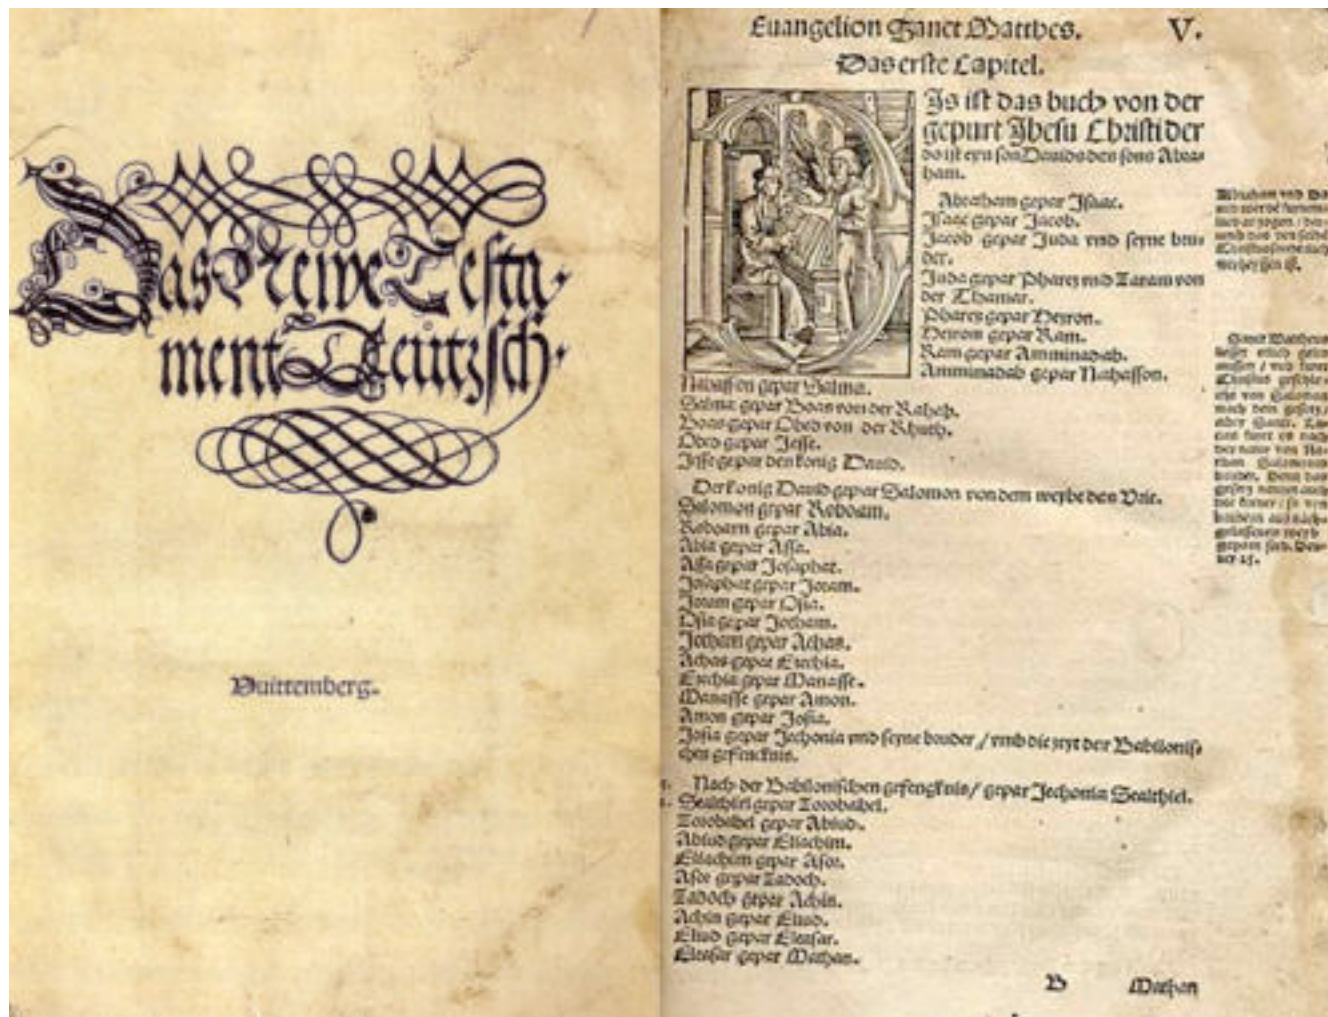 Das Newe Testa-
ment Deutzsch.
Vuittemberg.
Euangelion Sanct Matthes. V.
Das erste Capitel.
Is ist das buch von der
gepurt Jhesu Christi der
do ist eyn son Dauids des sons Abra-
ham.
Abraham gepar Jsaac.
Jsaac gepar Jacob.
Jacob gepar Juda vnd seyne bru-
der.
Juda gepar Pharez vnd Zaram von
der Thamar.
Pharez gepar Hezron.
Hezrom gepar Ram.
Ram gepar Amminadab.
Amminadab gepar Nahasson.
Nahasson gepar Salma.
Salma gepar Boas von der Rahab.
Boas gepar Obed von der Rhuth.
Obed gepar Jesse.
Jesse gepar den konig Dauid.
Der konig Dauid gepar Salomon von dem weybe des Vrie.
Salomon gepar Roboam.
Roboam gepar Abia.
Abia gepar Assa.
Assa gepar Josaphat.
Josaphat gepar Joram.
Joram gepar Osia.
Osia gepar Jotham.
Jotham gepar Achas.
Achas gepar Ezechia.
Ezechia gepar Manasse.
Manasse gepar Amon.
Amon gepar Josia.
Josia gepar Jechonia vnd seyne bruder / vmb die zeyt der Babilonis-
chen gefencknis.
Nach der Babilonischen gefengknis / gepar Jechonia Sealthiel.
Sealthiel gepar Zorobabel.
Zorobabel gepar Abiud.
Abiud gepar Eliachim.
Eliachim gepar Asor.
Asor gepar Zadoch.
Zadoch gepar Achin.
Achin gepar Eliud.
Eliud gepar Eleasar.
Eleasar gepar Mathan.
B Mathan
Abraham vnd Da
verheyssen ist.
Sanct Mattheus
Christus geschle-
cht von Salomon
nach dem gesetz /
aber Sanct. Lu-
cas furet es nach
der natur von Na-
than Salomons
bruder. Denn das